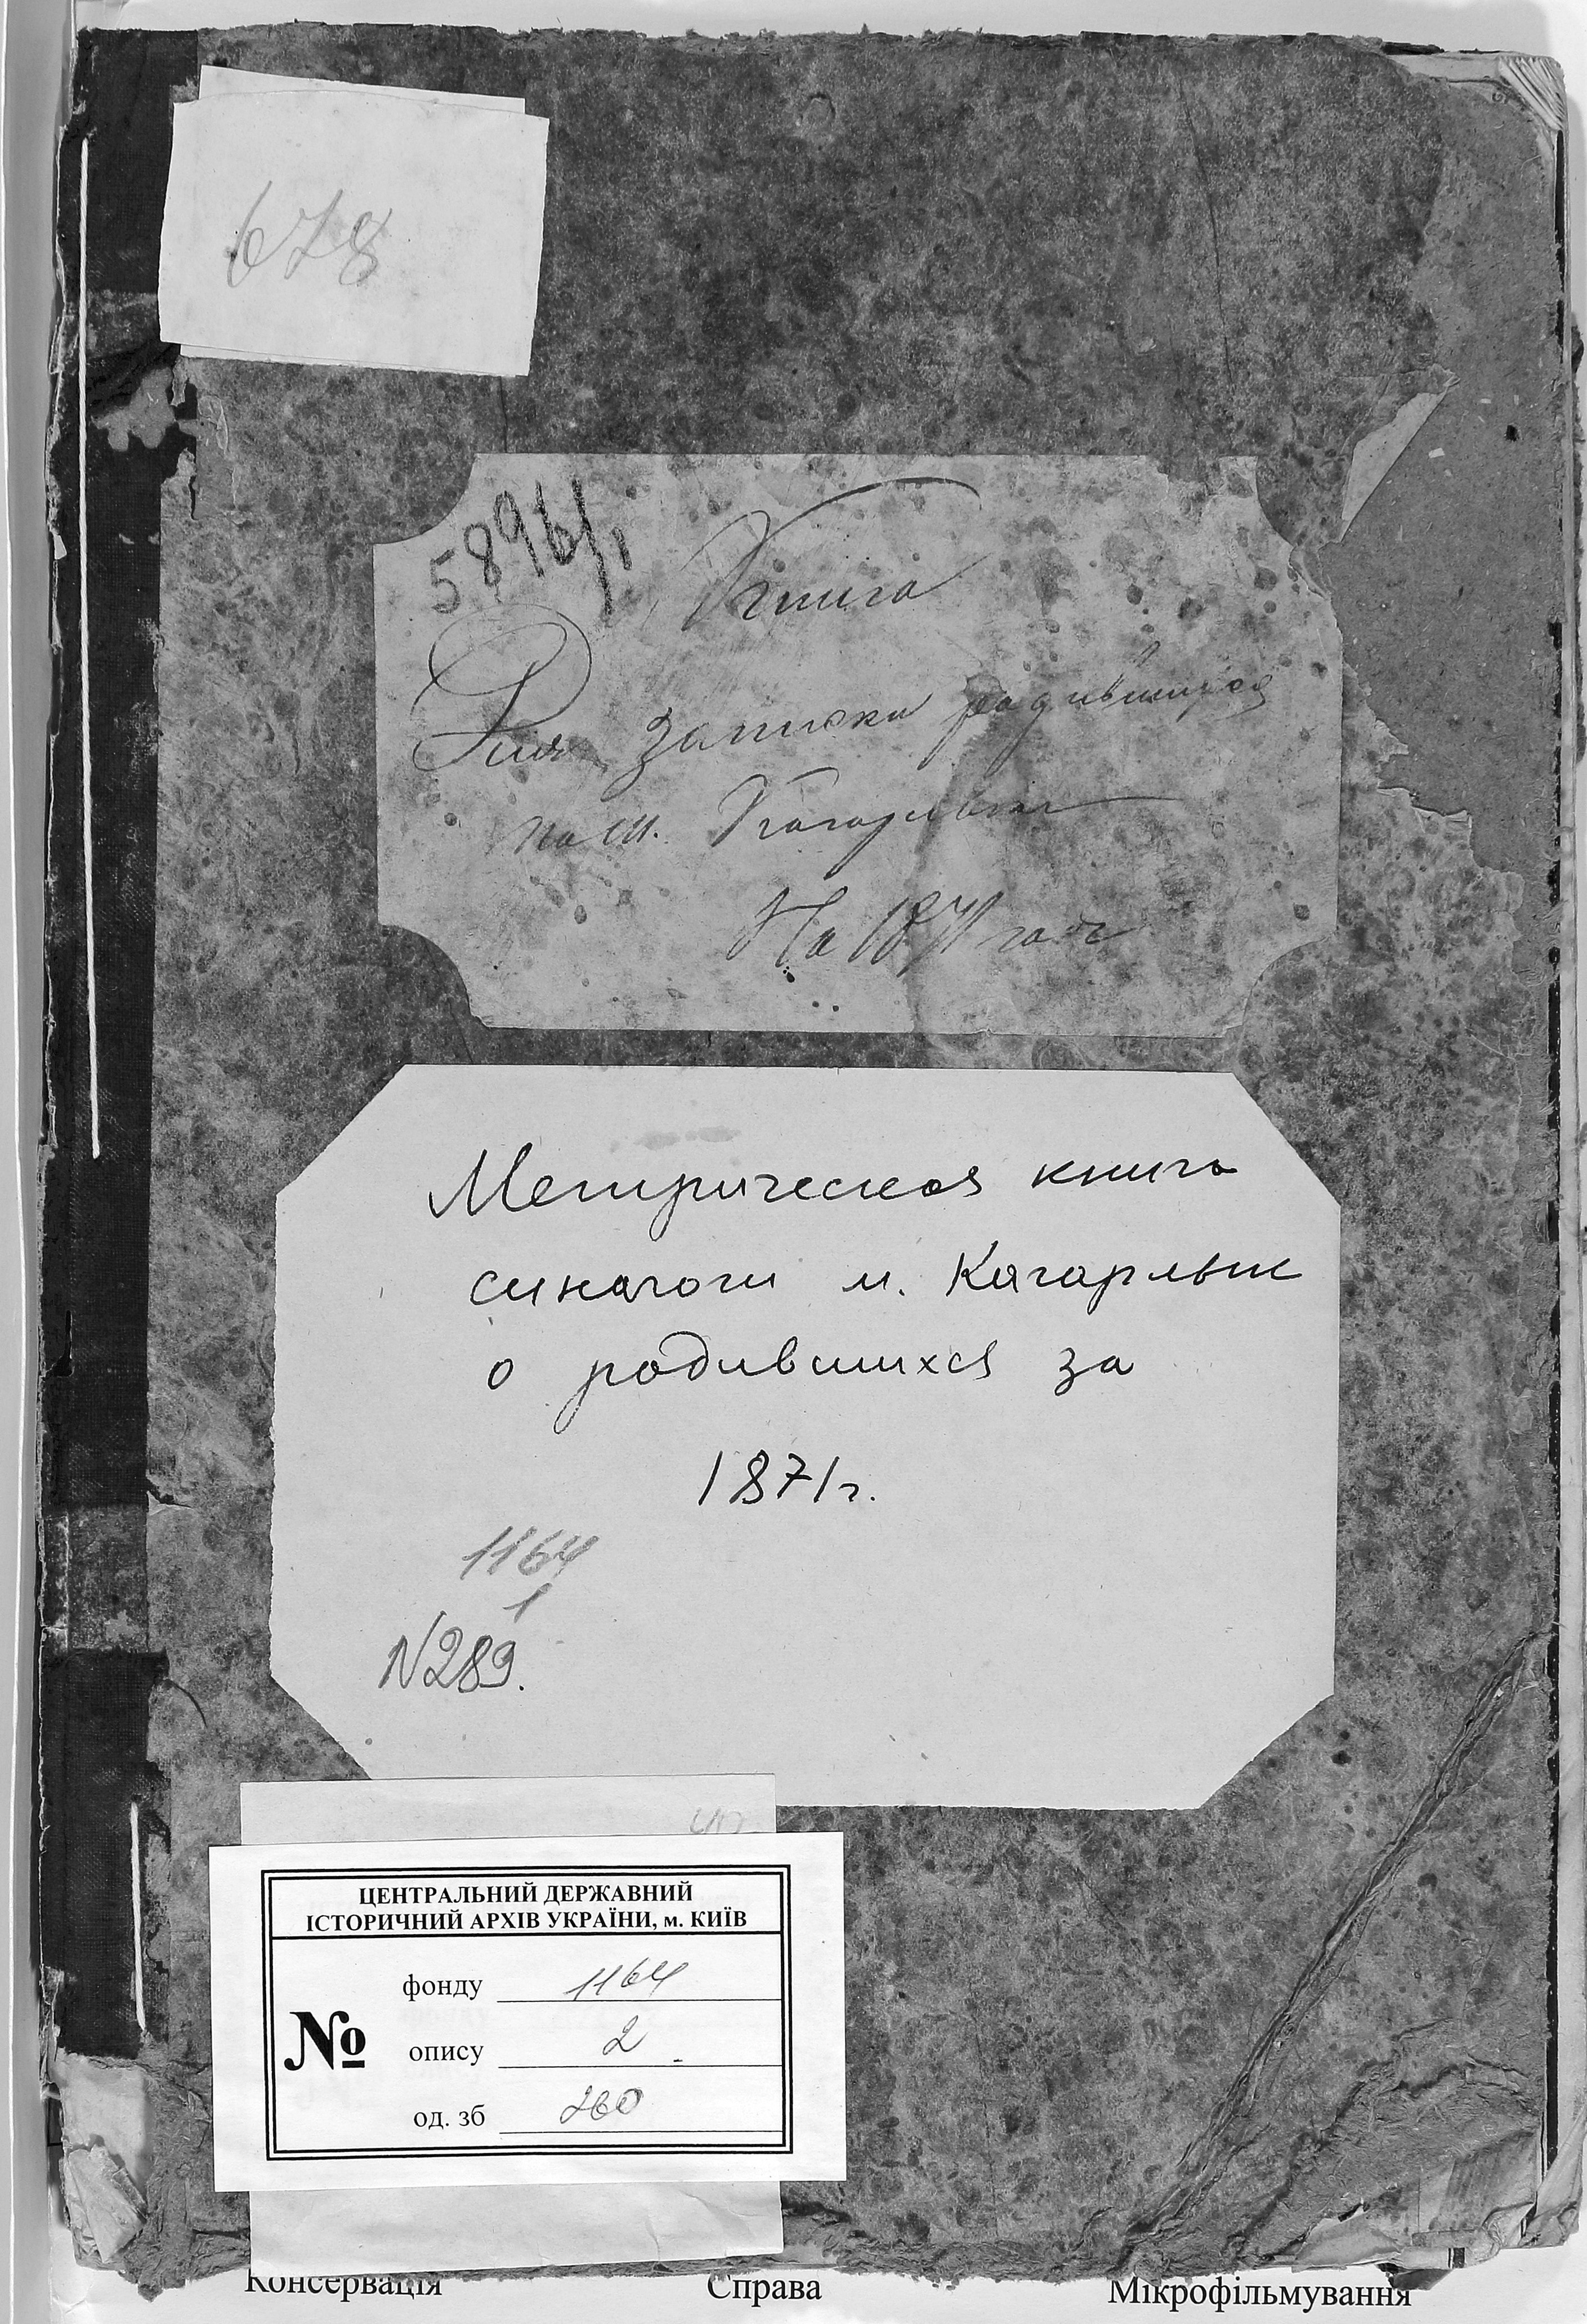 678
5896/1
Книга
Для записки родившихся
по м. Кагарлык
На 1871 год
Метрическая книга
синагоги м. Кагарлык
о родившихся за
1871 г.
1164
1
N 289.
ЦЕНТРАЛЬНИЙ ДЕРЖАВНИЙ
ІСТОРИЧНИЙ АРХІВ УКРАЇНИ, м. КИЇВ
№
фонду 1164
опису 2
од. зб 260
Консервація Справа Мікрофільмування